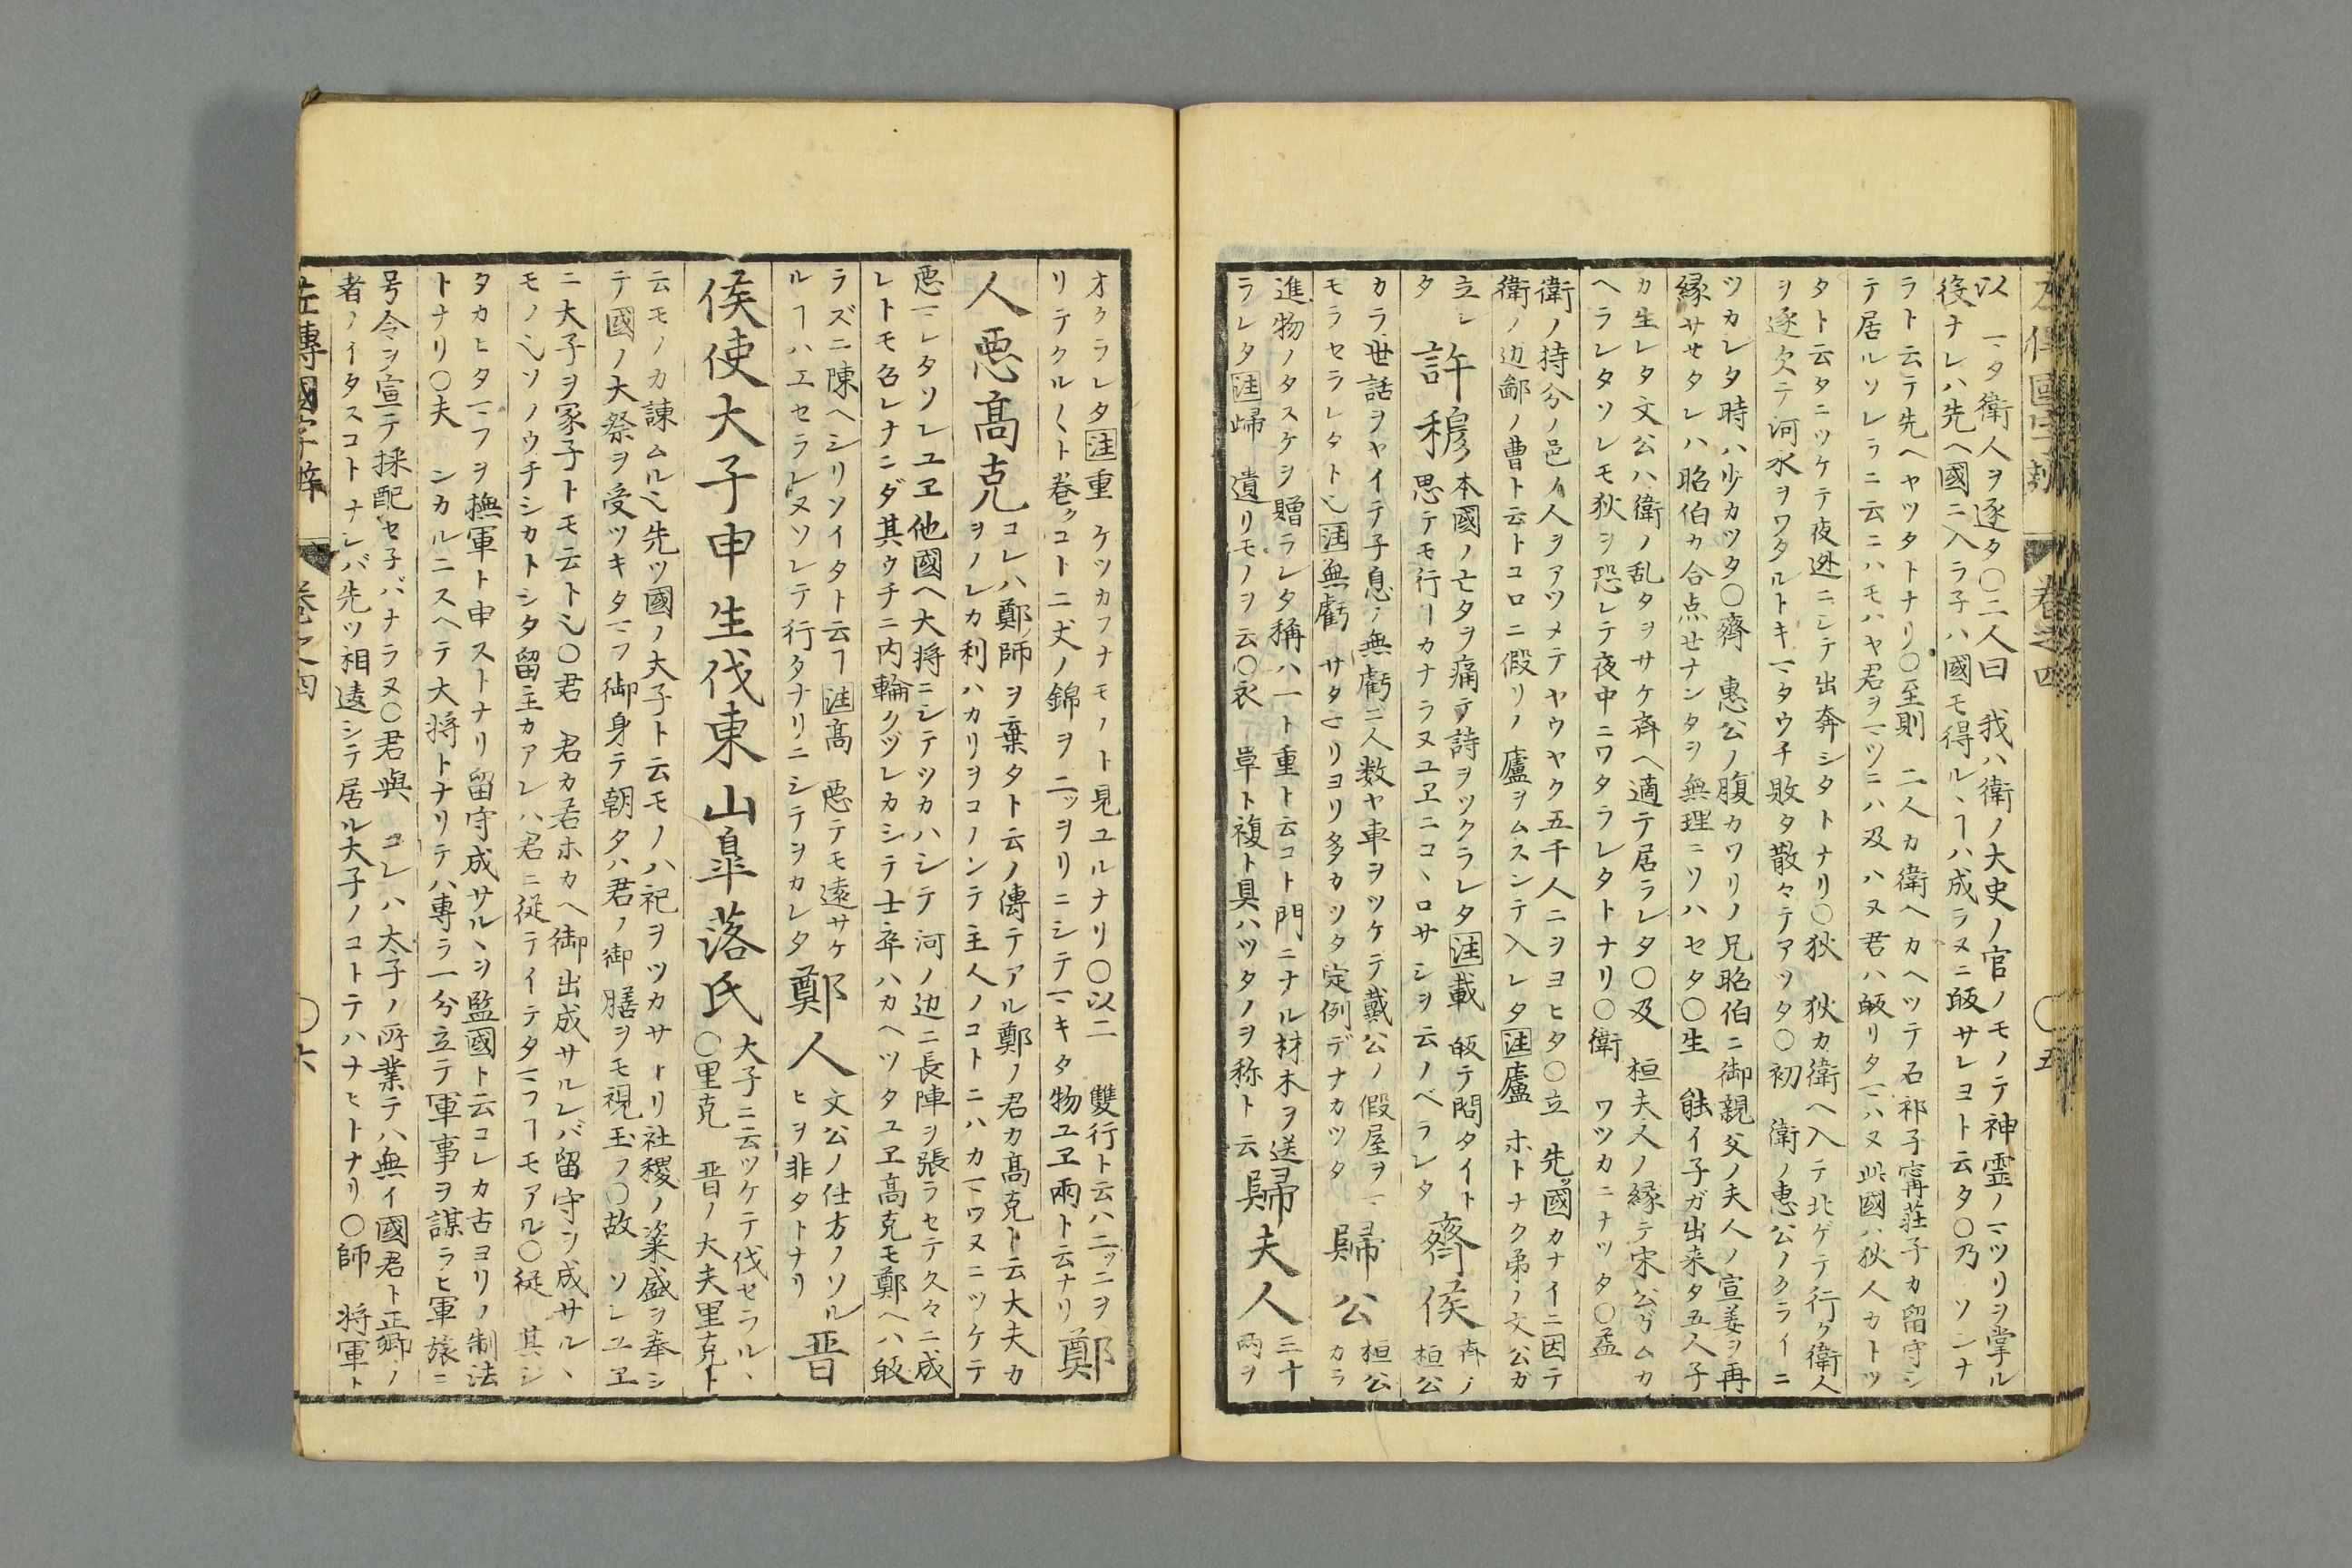 左傳國字辯 巻之四 〇五
以 マタ衛人ヲ逐タ〇二人曰 我ハ衛ノ大史ノ官ノモノテ神霊ノマツリヲ掌ル
役ナレハ先ヘ國ニ入ラ子ハ國モ得ルヽヿハ成ラヌニ皈サレヨト云タ〇乃 ソシナ
ラト云テ先ヘヤツタトナリ〇至則 二人カ衛ヘカヘツテ石祁子甯莊子カ留守シ
テ居ルソレラニ云ニハモハヤ君ヲマツニハ及ハヌ君ハ皈リタマハヌ此國ハ狄人カトツ
タト云タニツケテ夜迯ニシテ出奔シタトナリ〇狄 狄カ衛ヘ入テ北ゲテ行ク衛人
ヲ逐欠テ河水ヲワタルトキマタウチ敗タ散々テアツタ〇初 衛ノ惠公ノクライニ
ツカレタ時ハ少カツタ〇齊 惠公ノ腹カワリノ兄昭伯ニ御親父ノ夫人ノ宣姜ヲ再
縁サセタレハ昭伯カ合点セナンタヲ無理ニソハセタ〇生 能イ子ガ出来タ五人子
カ生レタ文公ハ衛ノ乱タヲサケ齊ヘ適テ居ラレタ〇及 桓夫人ノ縁テ宋公ガムカ
ヘラレタソレモ狄ヲ恐レテ夜中ニワタラレタトナリ〇衛 ワツカニナツタ〇孟
衛ノ持分ノ邑ノ人ヲアツメテヤウヤク五千人ニヲヨヒタ〇立 先國カナイニ因テ
衛ノ辺鄙ノ曹ト云トコロニ假リノ廬ヲムスンテ入レタ注廬 ホトナク弟ノ文公ガ
立レ
タ
許穆
本國ノ亡タヲ痛テ詩ヲツクラレタ注載 皈テ問タイト
思テモ行ーカナラヌユヱニコヽロサシヲ云ノベラレタ
齊侯
齊ノ
桓公
カラ世話ヲヤイテ子息ノ無虧ニ人数ヤ車ヲツケテ戴公ノ假屋ヲマ
モラセラレタト也注無虧 サタマリヨリ多カツタ定例デナカツタ
歸公
桓公
カラ
進物ノタスケヲ贈ラレタ稱ハ一ト重ト云コト門ニナル材木ヲ送
ラレタ注歸 遺リモノヲ云〇衣 単ト複ト具ハツタノヲ称ト云
歸夫人
三十
兩ヲ
オクラレタ注重 ケツカフナモノト見ユルナリ〇以二 雙行ト云ハニツニヲ
リテクル〱ト巻クコトニ丈ノ錦ヲ二ツヲリニシテマキタ物ユヱ兩ト云ナリ
鄭
人惡高克
コレハ鄭師ヲ棄タト云ノ傳テアル鄭ノ君カ高克ト云大夫カ
ヲノレカ利ハカリヲコノンテ主人ノコトニハカマワヌニツケテ
惡マレタソレユヱ他國ヘ大将ニシテツカハシテ河ノ辺ニ長陣ヲ張ラセテ久々ニ成
レトモ召レナニダ其ウチニ内輪クヅレカシテ士卒ハカヘツタユヱ高克モ鄭ヘハ皈
ラズニ陳ヘシリソイタト云ヿ注高 惡テモ遠サケ
ルヿハエセラレヌソレテ行タナリニシテヲカレタ
鄭人
文公ノ仕方ノソル
ヒヲ非タトナリ
晋
侯使大子申生伐東山皐落氏
大子ニ云ツケテ伐セラルヽ
〇里克 晋ノ大夫里克ト
云モノカ諌ムル也先ツ國ノ大子ト云モノハ祀ヲツカサトリ社稷ノ粢盛ヲ奉シ
テ國ノ大祭ヲ受ツキタマフ御身テ朝タハ君ノ御膳ヲモ視玉フ〇故 ソレユヱ
ニ大子ヲ冢子トモ云ト也〇君 君カ若ホカヘ御出成サルレバ留守ヲ成サルヽ
モノ也ソノウチシカトシタ留主カアレハ君ニ従テイテタマフヿモアル〇従 其シ
タカヒタマフヲ撫軍ト申ストナリ留守成サルヽヲ監國ト云コレカ古ヨリノ制法
トナリ〇夫 シカルニスヘテ大将トナリテハ專ラ一分立テ軍事ヲ謀ラヒ軍旅ニ
号令ヲ宣テ採配セ子バナラヌ〇君與 コレハ大子ノ所業テハ無イ國君ト正卿ノ
者ノイタスコトナレバ先ツ相違シテ居ル大子ノコトテハナヒトナリ〇師 将軍ト
左傳國字辯 巻之四 〇六